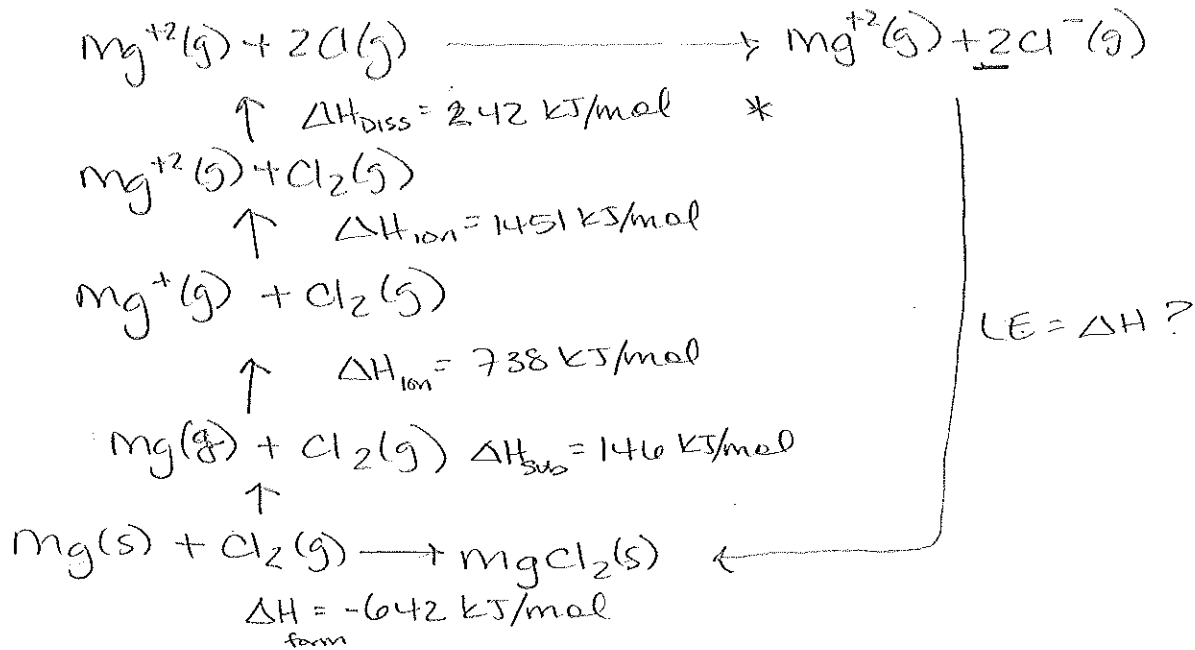 Mg⁺²(g) + 2Cl(g) → Mg⁺²(g) + 2Cl⁻(g)
↑ ΔH_DISS = 242 kJ/mol *
Mg⁺²(g) + Cl₂(g)
↑ ΔH_ion = 1451 kJ/mol
Mg⁺(g) + Cl₂(g)
LE = ΔH ?
↑ ΔH_ion = 738 kJ/mol
Mg(g) + Cl₂(g) ΔH_sub = 146 kJ/mol
↑
Mg(s) + Cl₂(g) → MgCl₂(s) ←
ΔH_form = -642 kJ/mol